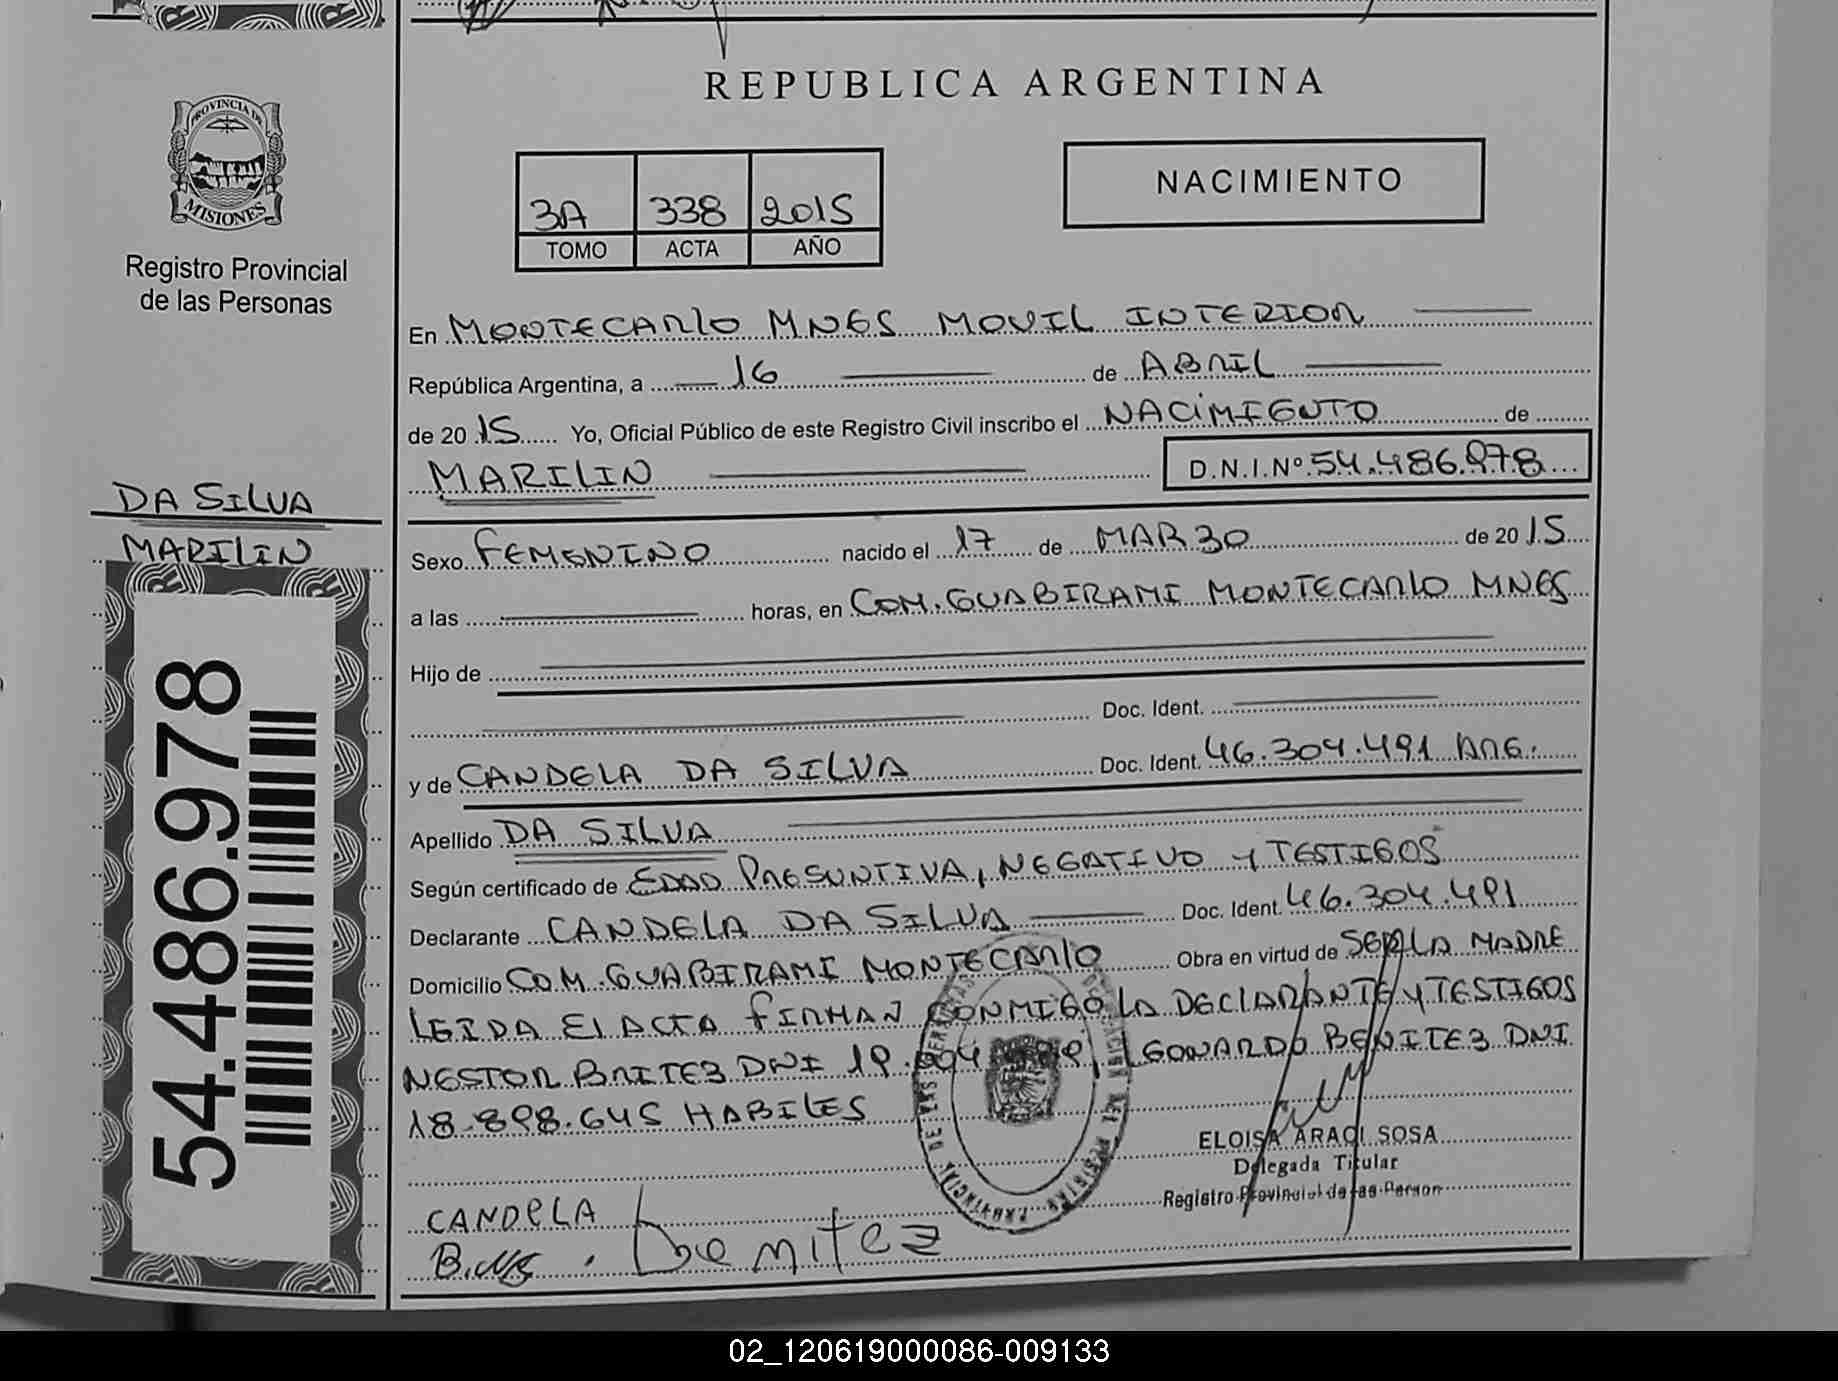 REPUBLICA ARGENTINA
PROVINCIA DE
MISIONES
Registro Provincial
de las Personas
3A 338 2015
TOMO ACTA AÑO
NACIMIENTO
En MONTECARLO MNES MOVIL INTERIOR
República Argentina, a 16 de ABRIL
de 20 15 Yo, Oficial Público de este Registro Civil inscribo el NACIMIENTO de
MARILIN D.N.I.Nº 54.486.978
DA SILVA
MARILIN
54.486.978
Sexo FEMENINO nacido el 17 de MARZO de 20 15
a las horas, en COM. GUABIRAMI MONTECARLO MNES
Hijo de
Doc. Ident.
y de CANDELA DA SILVA Doc. Ident. 46.304.491 ARG.
Apellido DA SILVA
Según certificado de EDAD PRESUNTIVA, NEGATIVO Y TESTIGOS
Declarante CANDELA DA SILVA Doc. Ident. 46.304.491
Domicilio COM. GUABIRAMI MONTECARLO Obra en virtud de SER LA MADRE
LEIDA EL ACTA FIRMAN CONMIGO LA DECLARANTE Y TESTIGOS
NESTOR BRITEZ DNI LEONARDO BENITEZ DNI
18.898.645 HABILES
ELOISA ARACI SOSA
Delegada Titular
Registro Provincial de las Person
CANDELA
benitez
02_120619000086-009133